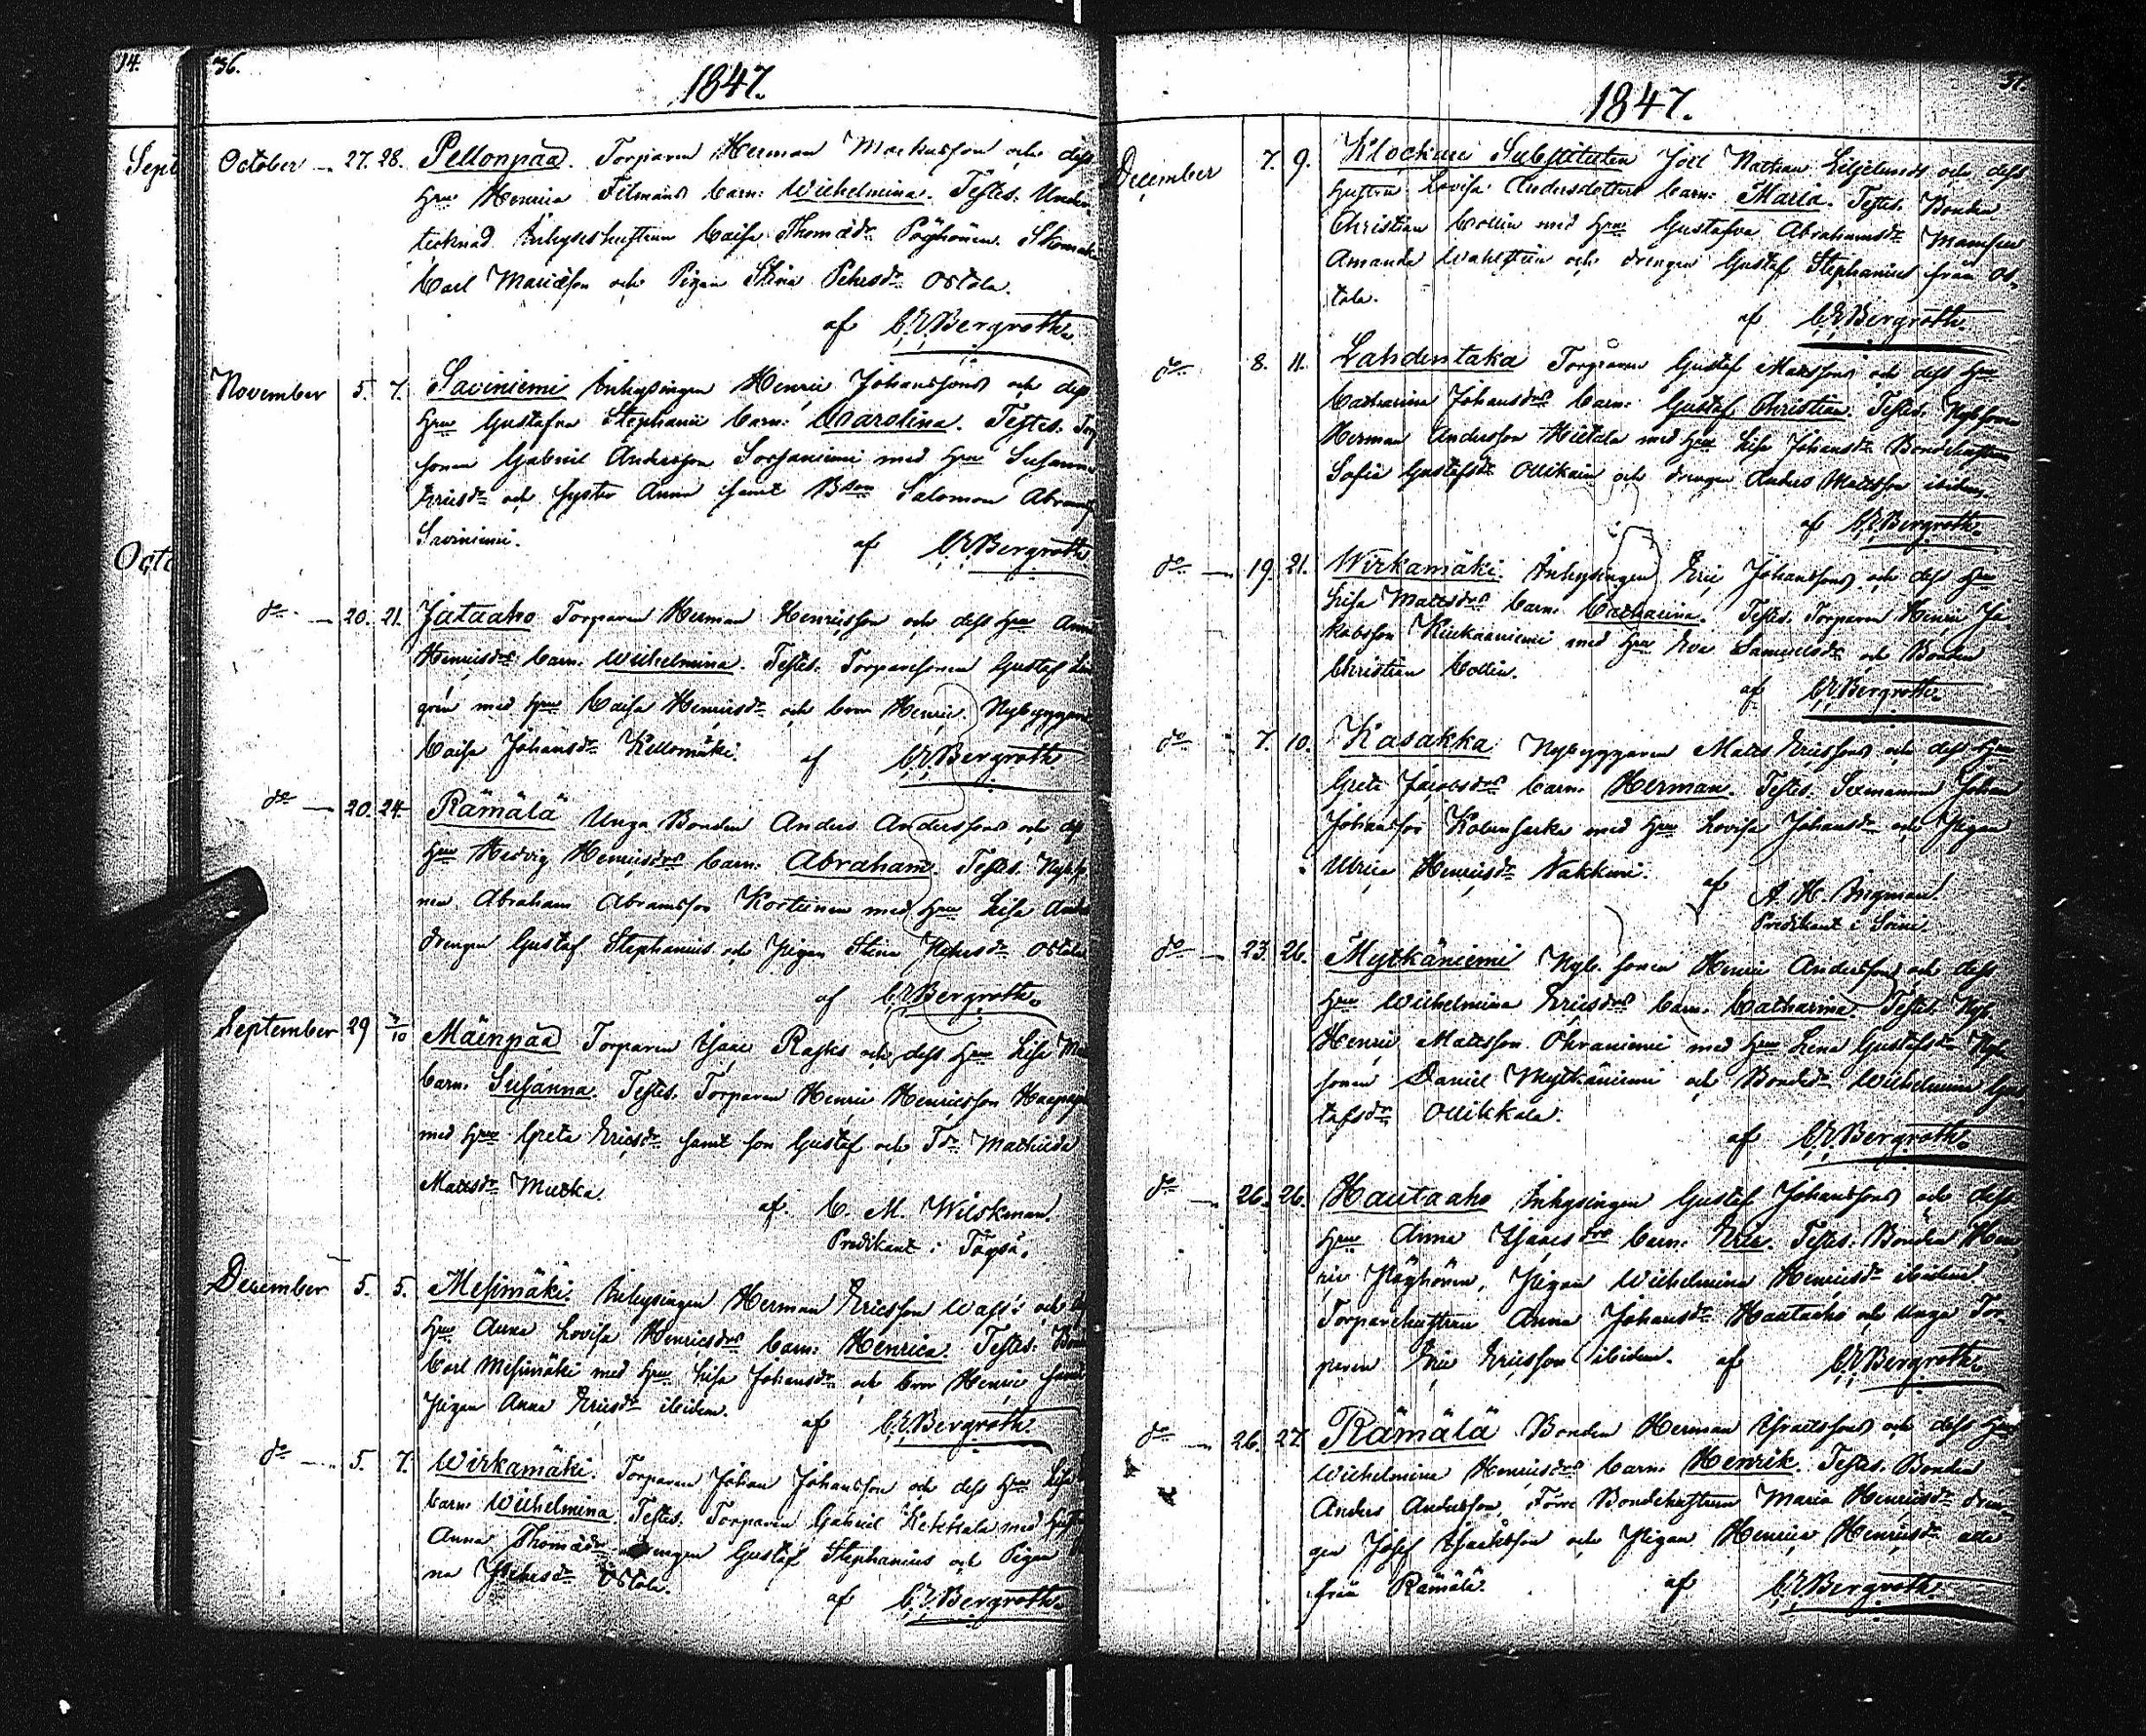 14.
Sept
Octo
36.
1847.
October 27. 28. Pellonpää. Torparen Herman Markusson och dess
Hru Henrica Filmans barn: Wilhelmina. Testes: Under-
tecknad Inhyseshustrun Caisa Thomasdr Pöyhönen. Skomak
Carl Mariæson och Pigan Stina Petersdr Ostola.
af C. E. Bergroth.
November 5. 7. Saviniemi Inhysingen Henric Johanssons och dess
Hru Gustafva Stephanii barn: Carolina. Testes: Torp
sonen Gabriel Andersson Sorjaniemi med Hru Susanna
Ericsdr och Syster Anna samt Bson Salomon Abrams
Saviniemi.
af C. E. Bergroth
do 20. 21. Jätaaho Torparen Herman Henricsson och dess Hru Anna
Henricsdrs barn: Wilhelmina. Testes: Torparesonen Gustaf
grén med Hru Caisa Henricsdr och bror Henric. Nybyggare
Caisa Johansdr Kellomäki. af C. E. Bergroth
do 20. 24. Rämälä Unga Bonden Anders Anderssons och dess
Hru Hedvig Henricsdrs barn: Abraham. Testes: Nyb.
nen Abraham Abramsson Kortunen med Hru Lisa Anders
drengen Gustaf Stephanius och Pigan Stina Petersdr Ostola
af C. E. Bergroth.
September 29 3/10 Mäinpää Torparen Isaac Rasks och dess Hru Lisa
barn: Susanna. Testes: Torparen Henric Henricsson
med Hru Greta Ericsdr samt son Gustaf och Tdr Mathilda
Mattsdr Mutka.
af. C. M. Wilskman.
Predikant i Töysä.
December 5. 5. Mesimäki. Inhysingen Herman Ericsson och
Hru Anna Lovisa Henricsdrs barn: Henrica. Testes: Bonden
Carl Mesimäki med Hru Lisa Johansdr och bror Henric samt
Pigan Anna Ericsdr ibidem.
af C. E. Bergroth.
do 5. 7. Wirkamäki. Torparen Johan Johansson och dess Hru Lisa
barn: Wilhelmina. Testes: Torparen Gabriel Kekkala med Hustru
Anna Thomasdr drengen Gustaf Stephanius och Pigan
na Petersdr Ostola.
af C. E. Bergroth.
37.
1847.
December 7. 9. Klockare Substituten Joel Nathan Liljelunds och dess
Hustru Lovisa Andersdotters barn: Maria. Testes: Bonden
Christian Collin med Hru Gustafva Abrahamsdr Mamsell
Amanda Wahlstén och drengen Gustaf Stephanius från Os-
tola.
af C. E. Bergroth.
do 8. 11. Lahdentaka Torparen Gustaf Mattssons och dess Hru
Catharina Johansdrs barn: Gustaf Christian. Testes: Nyb.sonen
Herman Andersson Hietala med Hru Lisa Johansdr Bondehustrun
Sofia Gustafsdr Ollikain och drengen Anders Mattsson ibidem.
af C. E. Bergroth.
do 19. 21. Wirkamäki. Inhysingen Eric Johanssons och dess Hru
Lisa Mattsdrs barn: Catharina. Testes: Torparen Henric Ja
kobsson Kiukaaniemi med Hru Eva Samuelsdr och Bonden
Christian Collin.
af C. E. Bergroth.
do 7. 10. Kasakka Nybyggaren Matts Ericssons och dess Hru
Greta Jacobsdrs barn: Herman. Testes: Sexmannen Johan
Johansson Kolunsarka med Hru Lovisa Johansdr och Pigan
Ulrica Henricsdr Vakkuri.
af A. H. Ingman.
Predikant i Soini.
do 23. 26. Mytkäniemi Nyb. sonen Henric Anderssons och dess
Hru Wilhelmina Ericsdrs barn: Catharina. Testes: Nyb.
Henric Mattsson Ohraniemi med Hru Lena Gustafsdr Nyb.
sonen Daniel Mytkäniemi och Bonded. Wilhelmina Gus
tafsdr Ollikkala.
af C. E. Bergroth.
do 26. 26. Hautaaho Inhysingen Gustaf Johanssons och dess
Hru Anna Isaacsdrs barn: Eric. Testes: Bonden Hen
ric Pöyhönen, Pigan Wilhelmina Henricsdr ibidem.
Torparehustrun Anna Johansdr Hautaaho och unga Tor-
paren Eric Ericsson ibidem. af C. E. Bergroth.
do 26. 27. Rämälä Bonden Herman Israelssons och dess Hru
Wilhelmina Henricsdrs barn: Henrik. Testes: Bonden
Anders Andersson, Förre Bondehustrun Maria Henricsdr dren-
gen Josef Isaksson och Pigan Henrica Henricsdr alla
från Rämälä. af C. E. Bergroth.